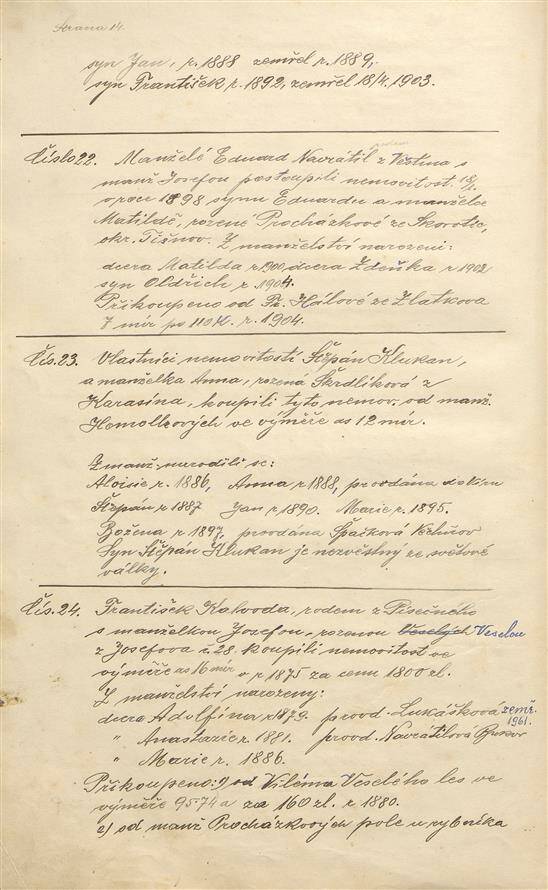 Strana 14.
syn Jan, r. 1888 zemřel r. 1889,
syn František r. 1892, zemřel 18/4. 1903.
Číslo 22. Manželé Eduard Navrátil z Věstína s
manž. Josefou postoupili nemovitost.
v roce 1898 synu Eduardu a manželce
Matildě, rozené Procházkové ze Skorotic,
okr. Tišnov. Z manželství narozeni:
dcera Matilda r. 1900, dcera Zdeňka r. 1902
syn Oldřich r. 1904.
Přikoupeno od Fr. Hálové ze Zlatkova
7 mír po 110 K. r. 1904.
Čís. 23. Vlastníci nemovitostí Štěpán Klukan,
a manželka Anna, rozená Škrdlíková z
Karasína, koupili tyto nemov. od manž.
Homolkových ve výměře as 12 mír.
Z manž. narodili se:
Aloisie r. 1886, Anna r. 1888, provdána do
Štěpán r. 1887 Jan r. 1890. Marie r. 1895.
Božena r. 1897, provdána Špačková
Syn Štěpán Klukan je nezvěstný ze světové
války.
Čís. 24. František Kalvoda, rodem z Písečného
s manželkou Josefou, rozenou Veselých Veselou
z Josefova č. 28. koupili nemovitost ve
výměře as 16 mír v r. 1875 za cenu 1800 zl.
Z manželství narozeny:
dcera Adolfína r. 1879. provd. Lukášková zemř.
1961.
" Anastazie r. 1881. provd. Navrátilová Bukov
" Marie r. 1886.
Přikoupeno: 1) od Viléma Veselého les ve
výměře 95.74 a za 160 zl. r. 1880.
2) od manž Procházkových pole u rybníka